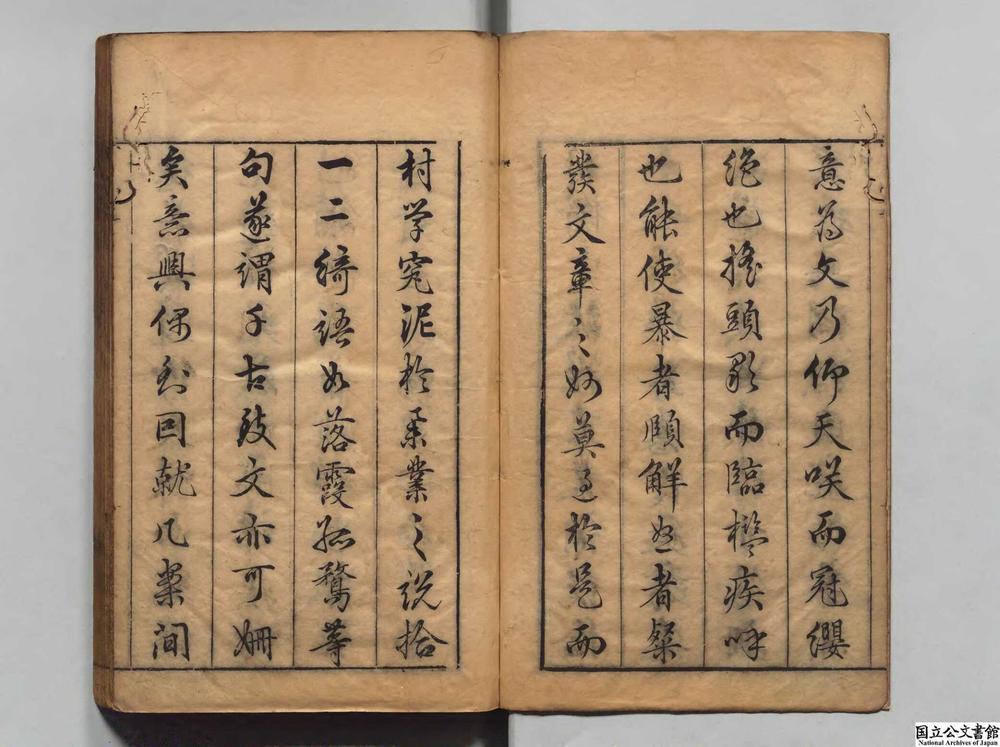 意為文乃仰天咲而冠纓
絶也搖頭歌而臨檻疾呼
也能使暴者頤解怒者粲
發文章之妙莫過於是而
村学究泥於举業之説拾
一二綺語如落霞孤鶩等
句遂謂千古致文亦可姍
矣意興偶到回就几案間
国立公文書館
National Archives of Japan